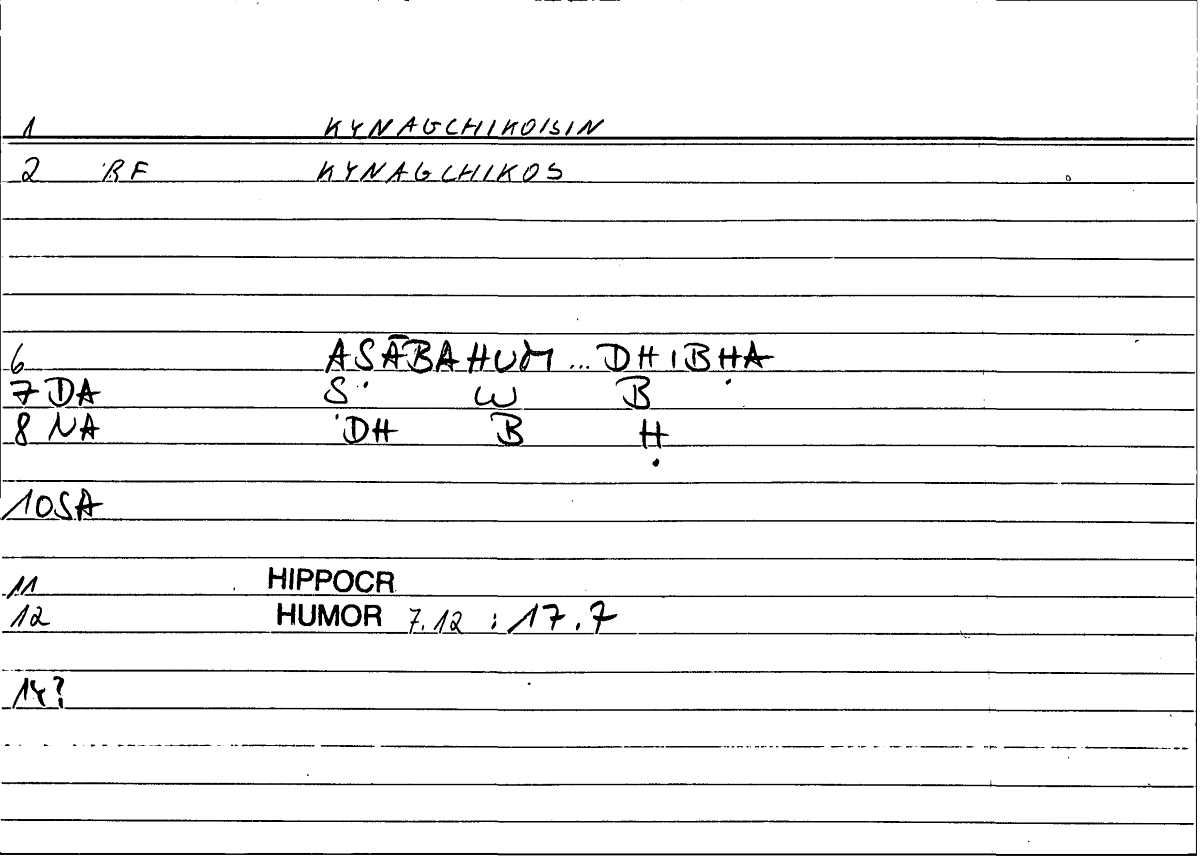 1 KYNAGCHIKOISIN
2 RF KYNAGCHIKOS
6 ASĀBAHUM ... DHIBḤA
7 DA Ṣ W B
8 NA DH B Ḥ
10 SA
11 HIPPOCR
12 HUMOR 7.12 : 17.7
14?